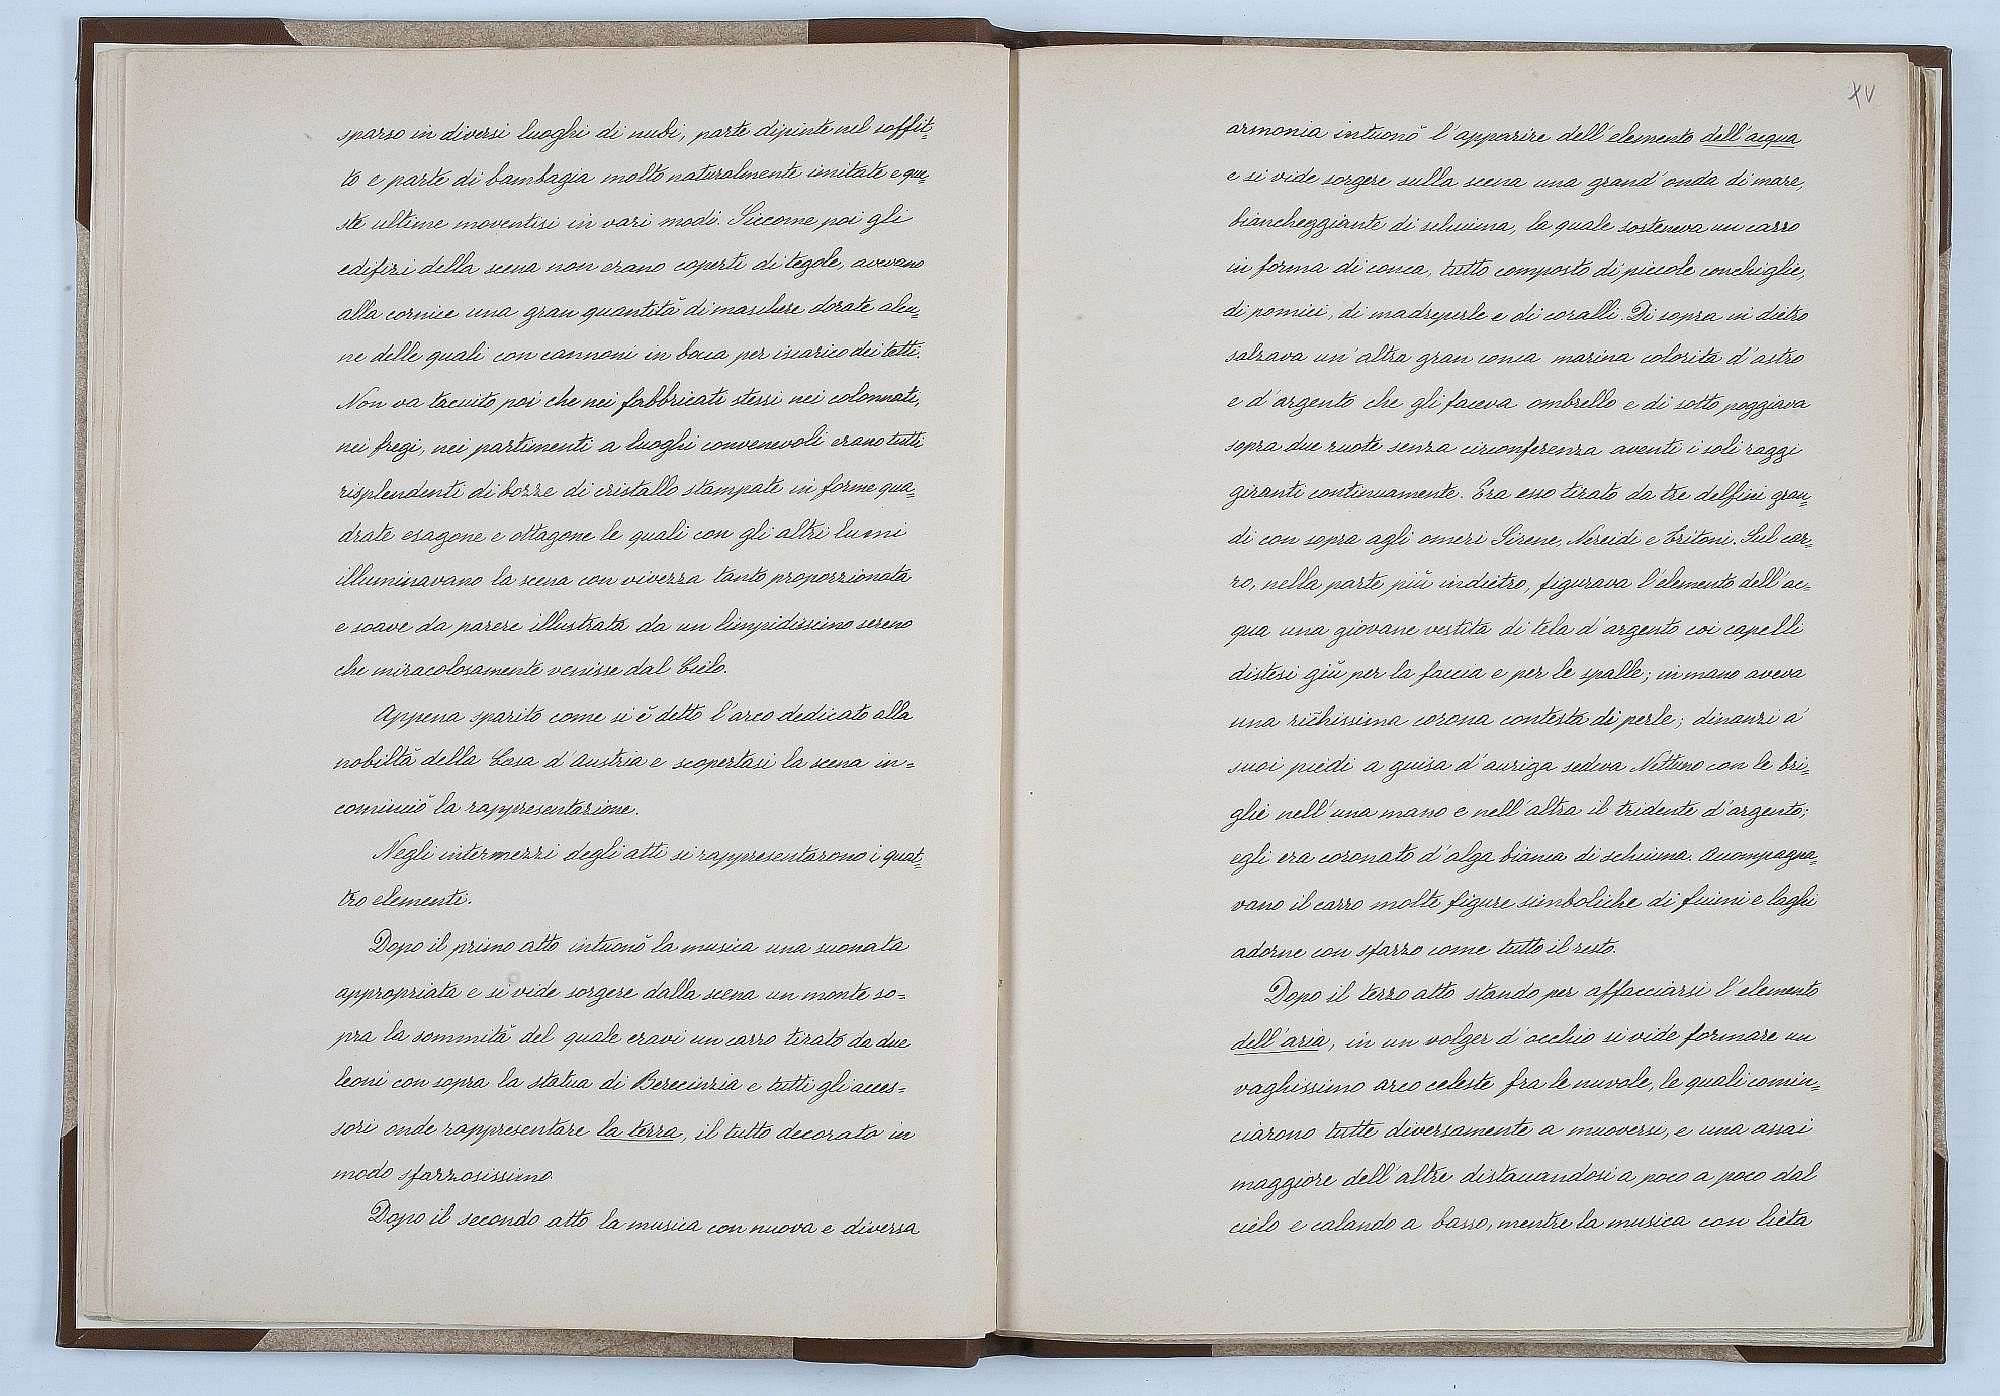 sparso in diversi luoghi di nubi, parte dipinte nel soffit-
to e parte di bambagia molto naturalmente imitate e que-
ste ultime moventisi in vari modi. Siccome poi gli
edifizi della scena non erano coperti di tegole, avevano
alla cornice una gran quantità di maschere dorate alcu-
ne delle quali con cannoni in bocca per iscarico dei tetti.
Non va taciuto poi che nei fabbricati stessi nei colonnati,
nei fregi, nei partimenti a luoghi convenevoli erano tutti
risplendenti di bozze di cristallo stampate in forme qua-
drate esagone e ottagone le quali con gli altri lumi
illuminavano la scena con vivezza tanto proporzionata
e soave da parere illustrata da un limpidissimo sereno
che miracolosamente venisse dal Cielo.
Appena sparito come si è detto l'arco dedicato alla
nobiltà della Casa d'Austria e scopertasi la scena in-
cominciò la rappresentazione.
Negli intermezzi degli atti si rappresentarono i quat-
tro elementi.
Dopo il primo atto intuonò la musica una suonata
appropriata e si vide sorgere dalla scena un monte so-
pra la sommità del quale eravi un carro tirato da due
leoni con sopra la statua di Berecinzia e tutti gli acces-
sori onde rappresentare la terra, il tutto decorato in
modo sfarzosissimo.
Dopo il secondo atto la musica con nuova e diversa
XV
armonia intuonò l'apparire dell'elemento dell'acqua
e si vide sorgere sulla scena una grand'onda di mare,
biancheggiante di schiuma, la quale sosteneva un carro
in forma di conca, tutto composto di piccole conchiglie,
di pomici, di madreperle e di coralli. Di sopra in dietro
s'alzava un'altra gran conca marina colorita d'ostro
e d'argento che gli faceva ombrello e di sotto poggiava
sopra due ruote senza circonferenza aventi i soli raggi
giranti continuamente. Era esso tirato da tre delfini gran-
di con sopra agli omeri Sirene, Nereidi e Tritoni. Sul car-
ro, nella parte più indietro, figurava l'elemento dell'ac-
qua una giovane vestita di tela d'argento coi capelli
distesi giù per la faccia e per le spalle; in mano aveva
una richissima corona contesta di perle; dinanzi a'
suoi piedi a guisa d'auriga sedeva Nettuno con le bri-
glie nell'una mano e nell'altra il tridente d'argento;
egli era coronato d'alga bianca di schiuma. Accompagna-
vano il carro molte figure simboliche di fiumi e laghi
adorne con sfarzo come tutto il resto.
Dopo il terzo atto stando per affacciarsi l'elemento
dell'aria, in un volger d'occhio si vide formare un
vaghissimo arco celeste fra le nuvole, le quali comin-
ciarono tutte diversamente a muoversi, e una assai
maggiore dell'altre distaccandosi a poco a poco dal
cielo e calando a basso, mentre la musica con lieta